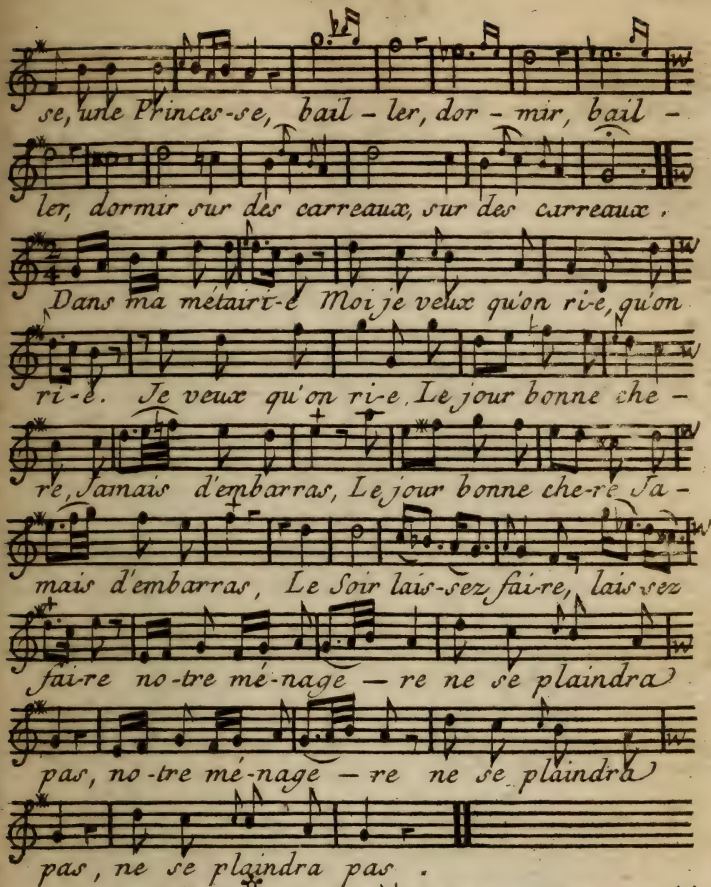 se, une Princes-se, bail - ler, dor - mir, bail -
ler, dormir sur des carreaux, sur des carreaux.
2 4
Dans ma métairi-e Moi je veux qu'on ri-e, qu'on
ri-e. Je veux qu'on ri-e, Le jour bonne che -
re, Jamais d'embarras, Le jour bonne che-re Ja -
mais d'embarras, Le Soir lais-sez faire, lais-sez
fai-re no-tre mé-nage - re ne se plaindra
pas, no-tre mé-nage - re ne se plaindra
pas, ne se plaindra pas.